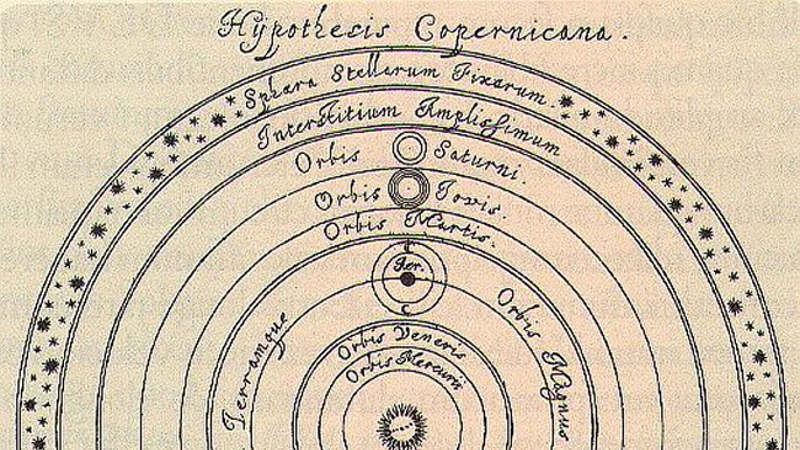 Hypothesis Copernicana.
Sphæra Stellarum Fixarum.
Interstitium Amplissimum
Orbis Saturni.
Orbis Jovis.
Orbis Martis.
Aer.
C
Terramque
Orbis Magnus
Orbis Veneris
Orbis Mercurii